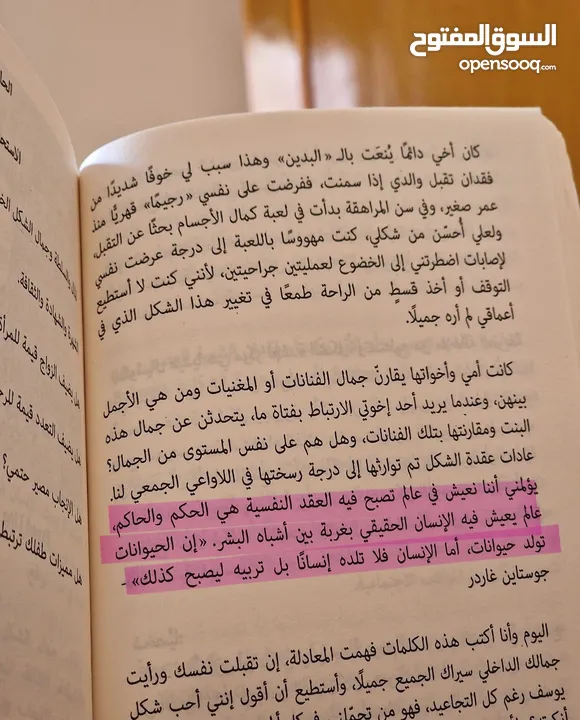 السوق المفتوح
opensooq.com
كان أخي دائمًا يُنعَت بالـ «البدين» وهذا سبب لي خوفًا شديدًا من
فقدان تقبل والدي إذا سمنت، ففرضت على نفسي «رجيمًا» قهريًّا منذ
عمر صغير، وفي سن المراهقة بدأت في لعبة كمال الأجسام بحثًا عن التقبل،
ولعلي أُحسّن من شكلي، كنت مهووسًا باللعبة إلى درجة عرضت نفسي
لإصابات اضطرتني إلى الخضوع لعمليتين جراحيتين، لأنني كنت لا أستطيع
التوقف أو أخذ قسطٍ من الراحة طمعًا في تغيير هذا الشكل الذي في
أعماقي لم أره جميلًا.
كانت أمي وأخواتها يقارنّ جمال الفنانات أو المغنيات ومن هي الأجمل
بينهن، وعندما يريد أحد إخوتي الارتباط بفتاة ما، يتحدثن عن جمال هذه
البنت ومقارنتها بتلك الفنانات، وهل هم على نفس المستوى من الجمال؟
عادات عقدة الشكل تم توارثها إلى درجة رسختها في اللاواعي الجمعي لنا.
يؤلمني أننا نعيش في عالم تصبح فيه العقد النفسية هي الحكم والحاكم،
عالم يعيش فيه الإنسان الحقيقي بغربة بين أشباه البشر. «إن الحيوانات
تولد حيوانات، أما الإنسان فلا تلده إنسانًا بل تربيه ليصبح كذلك» -
جوستاين غاردر
اليوم وأنا أكتب هذه الكلمات فهمت المعادلة، إن تقبلت نفسك ورأيت
جمالك الداخلي سيراك الجميع جميلًا، وأستطيع أن أقول إنني أحب شكل
يوسف رغم كل التجاعيد، فهو من
الشهرة والشهادة والثقافة.
هل يضيف الزواج قيمة للمرأة
هل يضيف التعدد قيمة للرج
هل الإنجاب مصير حتمي؟
هل مميزات طفلك ترتبط